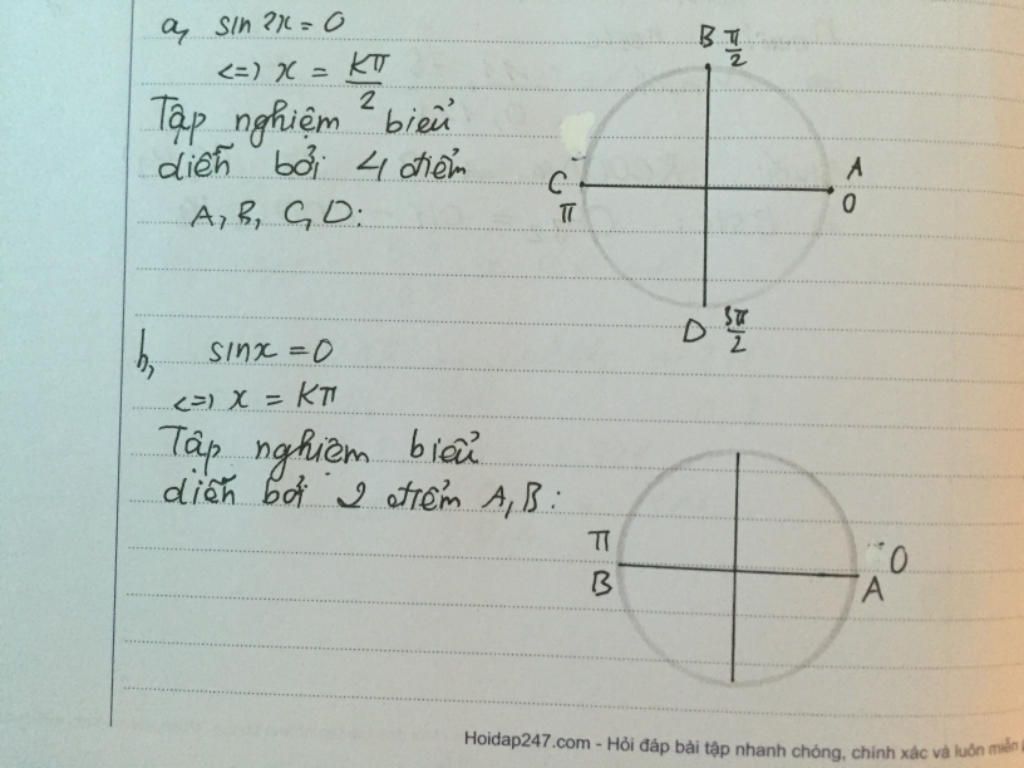 a, sin 2x = 0
<=> x = kπ/2
Tập nghiệm biểu
diễn bởi 4 điểm
A, B, C, D:
B π/2
A
0
C
π
D 3π/2
b, sinx = 0
<=> x = kπ
Tập nghiệm biểu
diễn bởi 2 điểm A, B:
π
B
0
A
Hoidap247.com - Hỏi đáp bài tập nhanh chóng, chính xác và luôn miễn